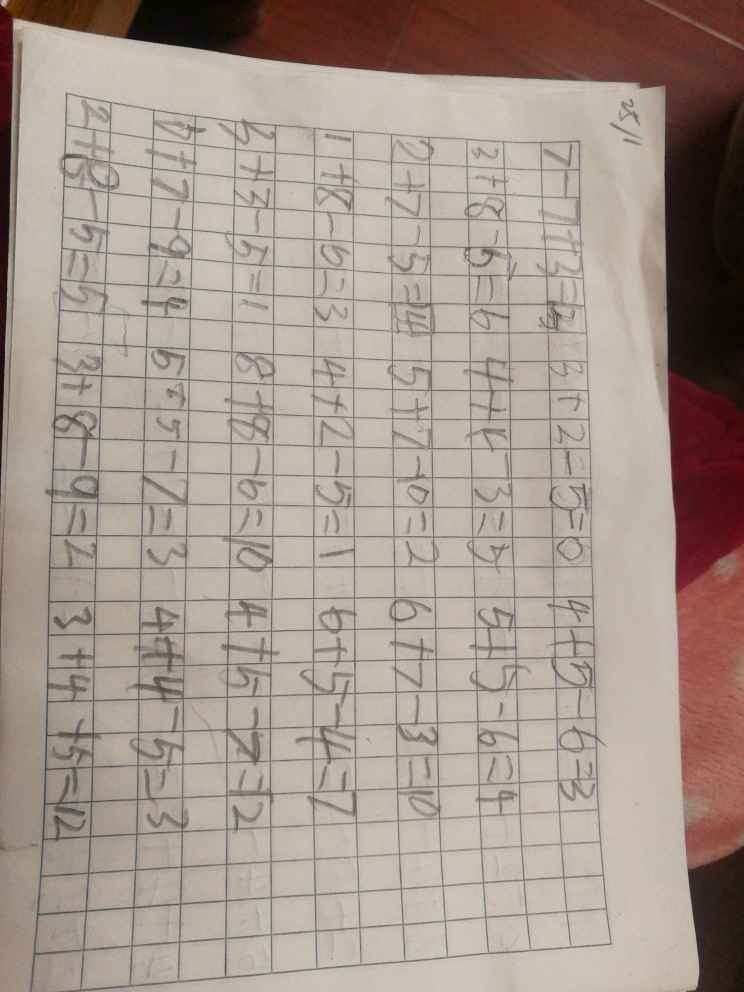 25/1
7-7+3=3 3+2-5=0 4+5-6=3
3+8-5=6 4+4-3=5 5+5-6=4
2+7-5=4 5+7-10=2 6+7-3=10
1+8-6=3 4+2-5=1 6+5-4=7
3+3-5=1 8+8-6=10 4+5-7=2
+7-9=4 5+5-7=3 4+4-5=3
2+8-5=5 3+8-9=2 3+4+5=12